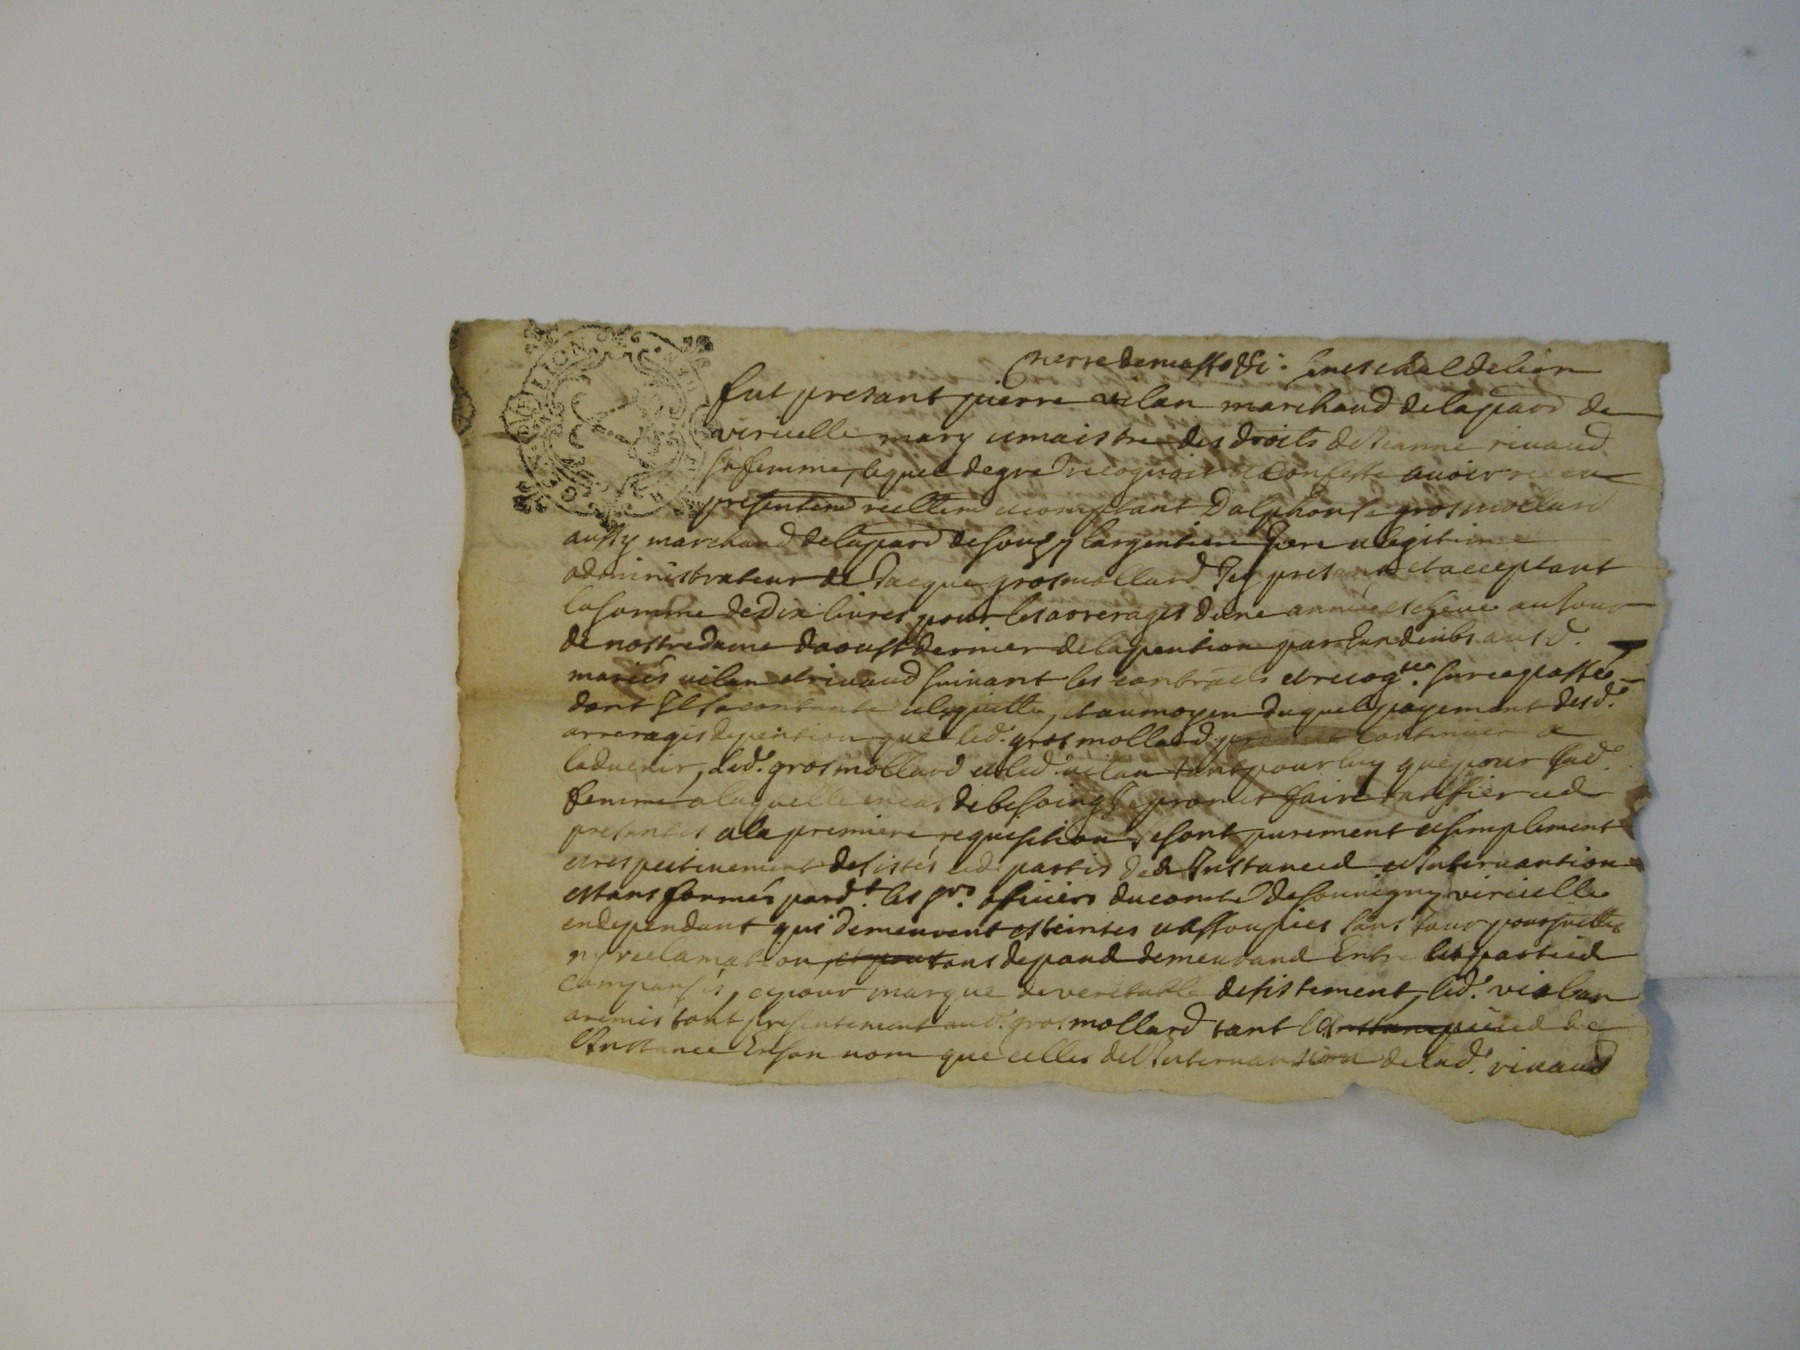 pierre demasso &c. seneschal de lion
fut presant pierre vilan marchand de la parr de
viricelle mary et maistre des droits de Jeanne rivaud
sa femme, lequel de gre recognoit et confesse avoir receu
presentem reellem et comptant d'alphonse grosmollard
aussy marchand de la parr de souzy l'argentiere pere et legitime
administrateur de Jacque grosmollard Icy presant et acceptant
la somme de dix livres pour les arrerages d'une année escheue au jour
de nostre dame d'aoust dernier de la pention par luy deube ausd.
mariés vilan et rivaud suivant les contracts et recog.ces sur ce passés
dont Il se contante et le quitte, et au moyen duquel payement desd.
arrerages de pention que led. grosmollard promet continuer a
l'advenir, led. grosmollard et led. vilan tant pour luy que pour sad.
femme a laquelle en cas de besoing Il promet faire ratifier ced
presantes a la premiere requisition, se sont purement et simplement
et respectivement desistés et departis de l'Instance et Intervantion
estans formés pard.t les srs officiers du comté de souvigny viricelle
en dependant qui demeurent esteintes et assoupies sans pouvoir poursuittes
ny reclamation, et pour tous depand demeurand Entre les partied
compansés, et pour marque de veritable desistement, led. vilan
a remis tout presentement aud. grosmollard tant l'Instan pieced de
l'Instance En son nom que celles de l'Intervansion de lad. rivaud